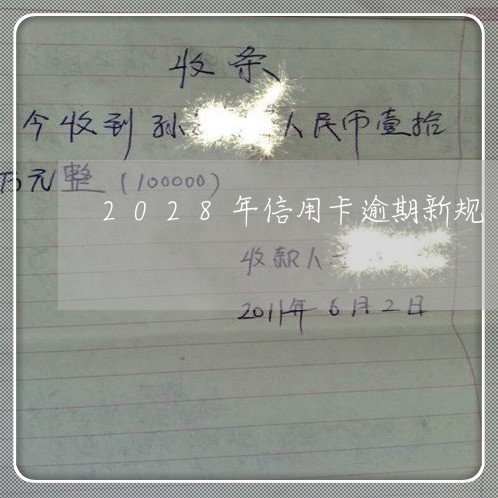 收条
今收到孙 人民币壹拾
万元整(100000)
2028年信用卡逾期新规
收款人
2011年6月2日